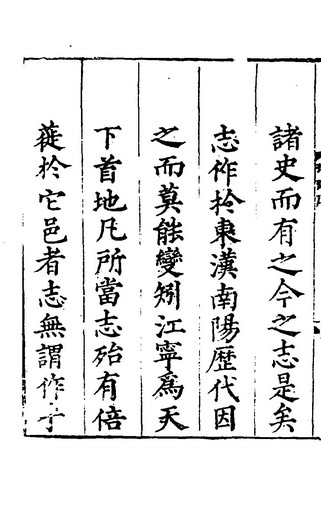 諸史而有之今之志是矣
志作扵東漢南陽歷代因
之而莫能變矧江寧爲天
下首地凡所當志殆有倍
蓰扵它邑者志無謂作于